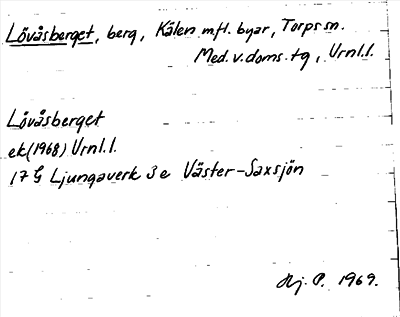 Lövåsberget, berg, Kälen m.fl. byar, Torps sn.
Med. v. doms. tg, Urnl.l.
Lövåsberget
ek (1968) Urnl.l.
17 G Ljungaverk 3 e Väster-Saxsjön
Hj. P. 1969.